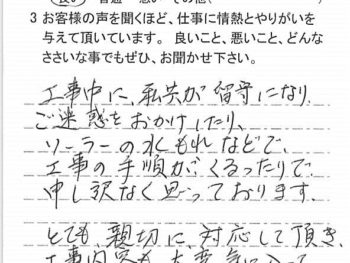 3 お客様の声を聞くほど、仕事に情熱とやりがいを
与えて頂いています。 良いこと、悪いこと、どんな
ささいな事でもぜひ、お聞かせ下さい。
工事中に、私共が留守になり、
ご迷惑をおかけしたり、
ソーラーの水もれなどで、
工事の手順がくるったりで、
申し訳なく思っております。
とても、親切に、対応して頂き、
工事内容も、大変気に入って